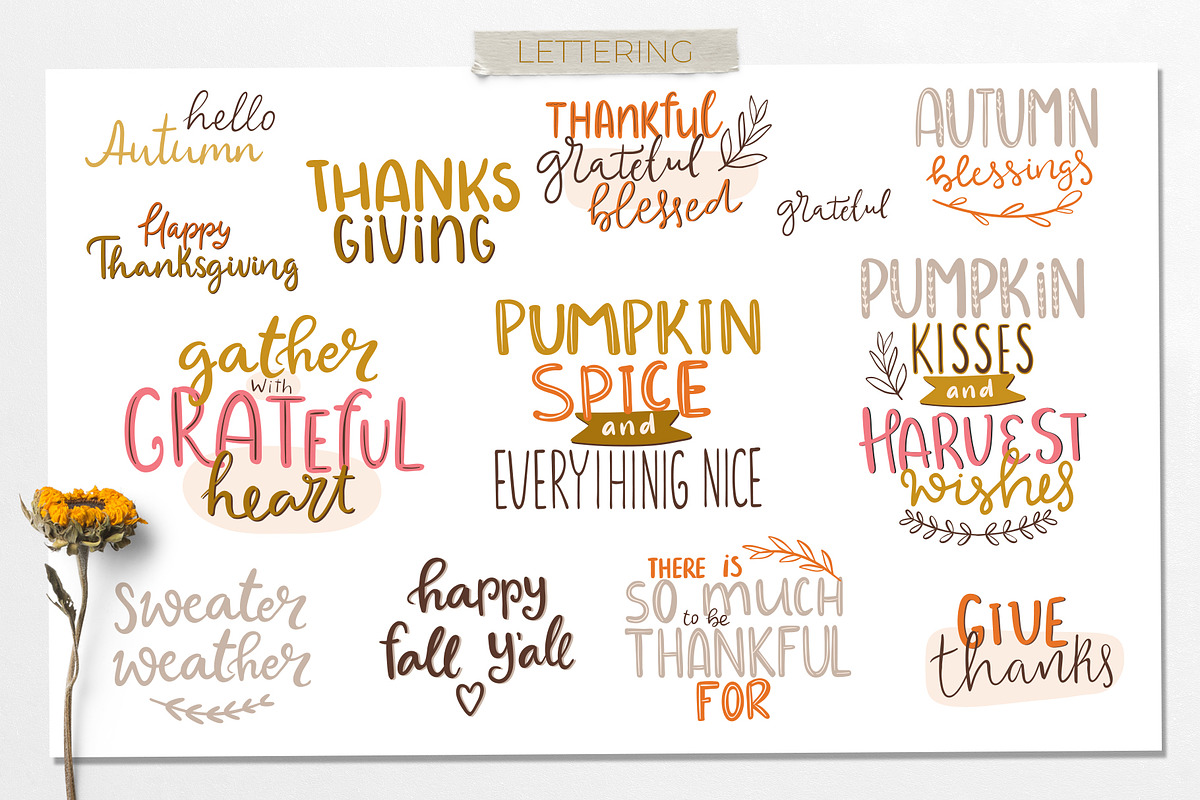 LETTERING
hello
Autumn
Happy
Thanksgiving
THANKS
GIVING
THANKful
grateful
blessed
grateful
AUTUMN
blessings
gather
with
GRATEfUL
heart
PUMPKIN
SPICE
and
EVERYTHINIG NICE
PUMPKiN
KISSES
and
HARVEST
wishes
Sweater
weather
happy
fall y'all
THERE iS
SO MUCH
to be
THANKFUL
FOR
GIVE
thanks